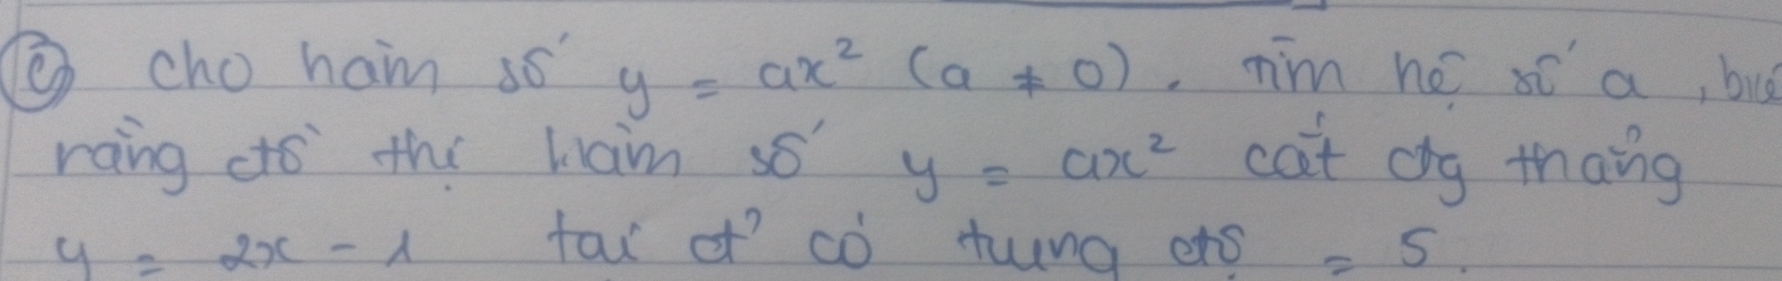 ⓒ cho hàm số y = ax² (a ≠ 0). Tìm hệ số a, biế
rằng đồ thị hàm số y = ax² cắt đg thẳng
y = 2x - 1 tại đ' có tung độ = 5.